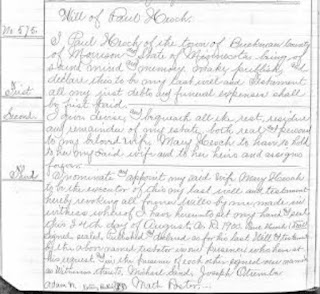 Will of Paul Hesch
No 575
I Paul Hesch of the town of Buckman County
of Morrison State of Minnesota being of
sound mind and memory make publish &
declare this to be my last will and testament
First all my just debts and funeral expenses shall
be first paid.
Second I give devise and bequeath all the rest, residue
and remainder of my estate both real & personal
to my beloved wife Mary Hesch to have to hold
to her my said wife and to her heirs and assigns
forever.
Third I nominate & appoint my said wife Mary Hesch
to be the executor of this my last will and testament
hereby revoking all former wills by me made in
witness whereof I have hereunto set my hand & seal
this 24th day of August A.D. 1900. Paul Hesch
signed sealed, published & declared as for his last Will & testament
by the above named testator in our presence who have at
his request in the presence of each other signed our names
as witnesses thereto. Michael Joseph
Adam N.